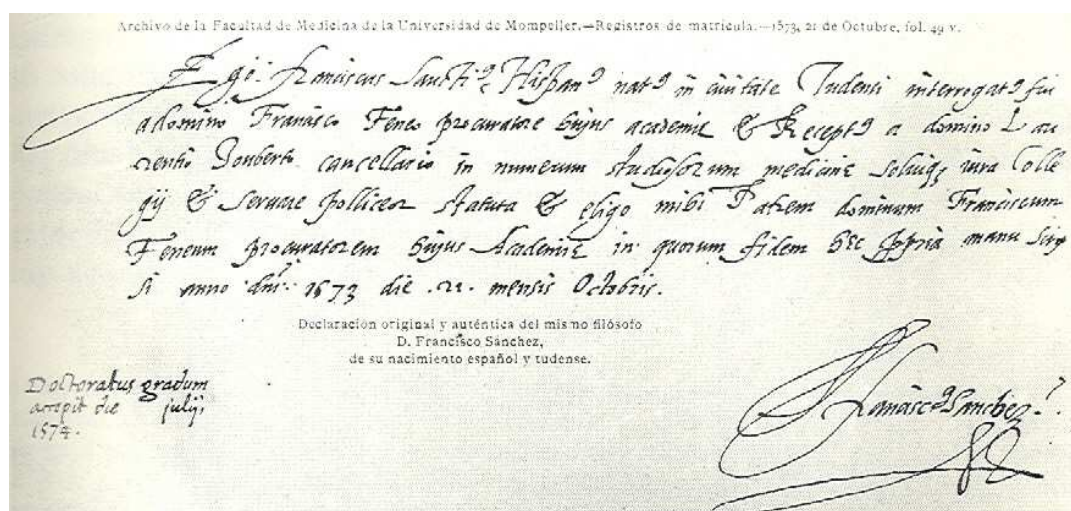 Archivo de la Facultad de Medicina de la Universidad de Mompeller.—Registros de matrícula.—1573, 21 de Octubre, fol. 49 v.
Ego Franciscus Sanctiꝰ Hispanꝰ natꝰ in ciuitate Tudensi interrogatꝰ fui
a domino Francisco Feneo procuratore hujus academię & Receptꝰ a domino Lau
rentio Jouberto cancellario in numerum studiosorum medicinę soluiqꝫ iura Colle
gij & seruare polliceor statuta & eligo mihi Patrem dominum Franciscum
Feneum procuratorem hujus Academię in quorum fidem hęc ꝓpria manu scrip
si anno dnĩ. 1573 die .21. mensis Octobris.
Declaración original y auténtica del mismo filósofo
D. Francisco Sánchez,
de su nacimiento español y tudense.
Doctoratus gradum
accepit die julij,
1574.
Franciscꝰ Sanchez